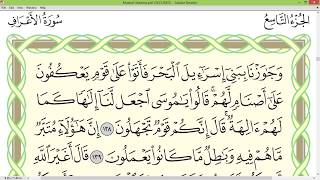 الجزء التاسع
سورة الأعراف
وَجَٰوَزْنَا بِبَنِىٓ إِسْرَٰٓءِيلَ ٱلْبَحْرَ فَأَتَوْا۟ عَلَىٰ قَوْمٍ يَعْكُفُونَ
عَلَىٰٓ أَصْنَامٍ لَّهُمْ ۚ قَالُوا۟ يَٰمُوسَى ٱجْعَل لَّنَآ إِلَٰهًا كَمَا
لَهُمْ ءَالِهَةٌ ۚ قَالَ إِنَّكُمْ قَوْمٌ تَجْهَلُونَ ١٣٨ إِنَّ هَٰٓؤُلَآءِ مُتَبَّرٌ
مَّا هُمْ فِيهِ وَبَٰطِلٌ مَّا كَانُوا۟ يَعْمَلُونَ ١٣٩ قَالَ أَغَيْرَ ٱللَّهِ